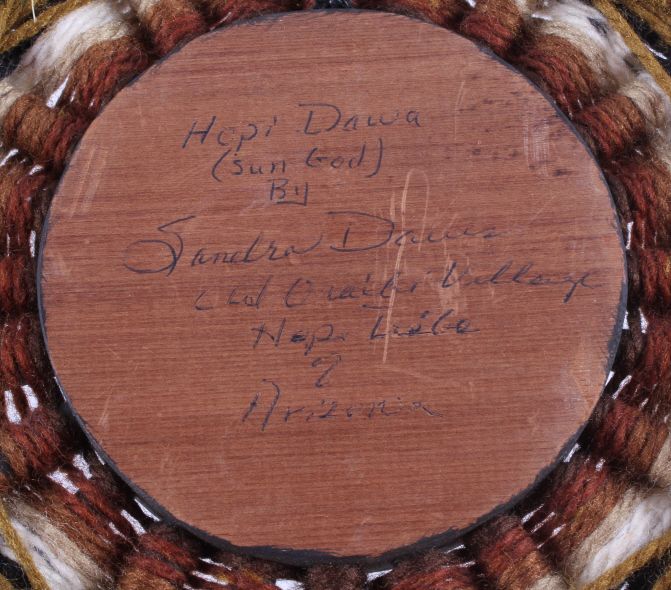 Hopi Dawa
(sun God)
By
Sandra Dawes
Old Oraibi Village
Hopi Tribe
of
Arizonia